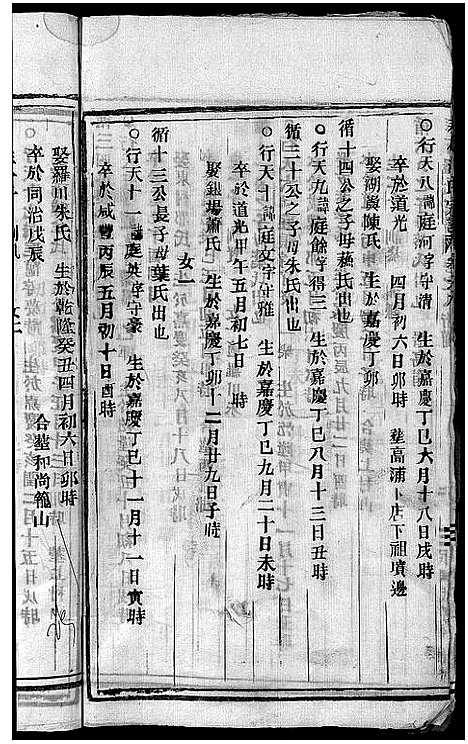 ○行天八諱庭河字守清 生於嘉慶丁巳六月十八日戌時
卒於道光 四月初六日卯時 塟高浦下店下祖墳邊
娶湖 陳氏 生於嘉慶丁卯
循十四公之子母蘓氏出也
○行天九諱庭餘字得三 生於嘉慶丁巳八月十三日丑時
循三十公之子母朱氏出也
○行天十諱庭文字守雅 生於嘉慶丁巳九月二十日未時
卒於道光甲午五月初七日 時
娶 塲蕭氏 生於嘉慶丁卯十二月廿九日子時
女一
循十三公長子母葉氏出也
○行天十一諱庭英字守豪 生於嘉慶丁巳十一月十一日寅時
卒於咸豐丙辰五月初十日酉時
娶羅川朱氏 生於乾隆癸丑四月初六日卯時
卒於同治戊辰 合塟和尚 山